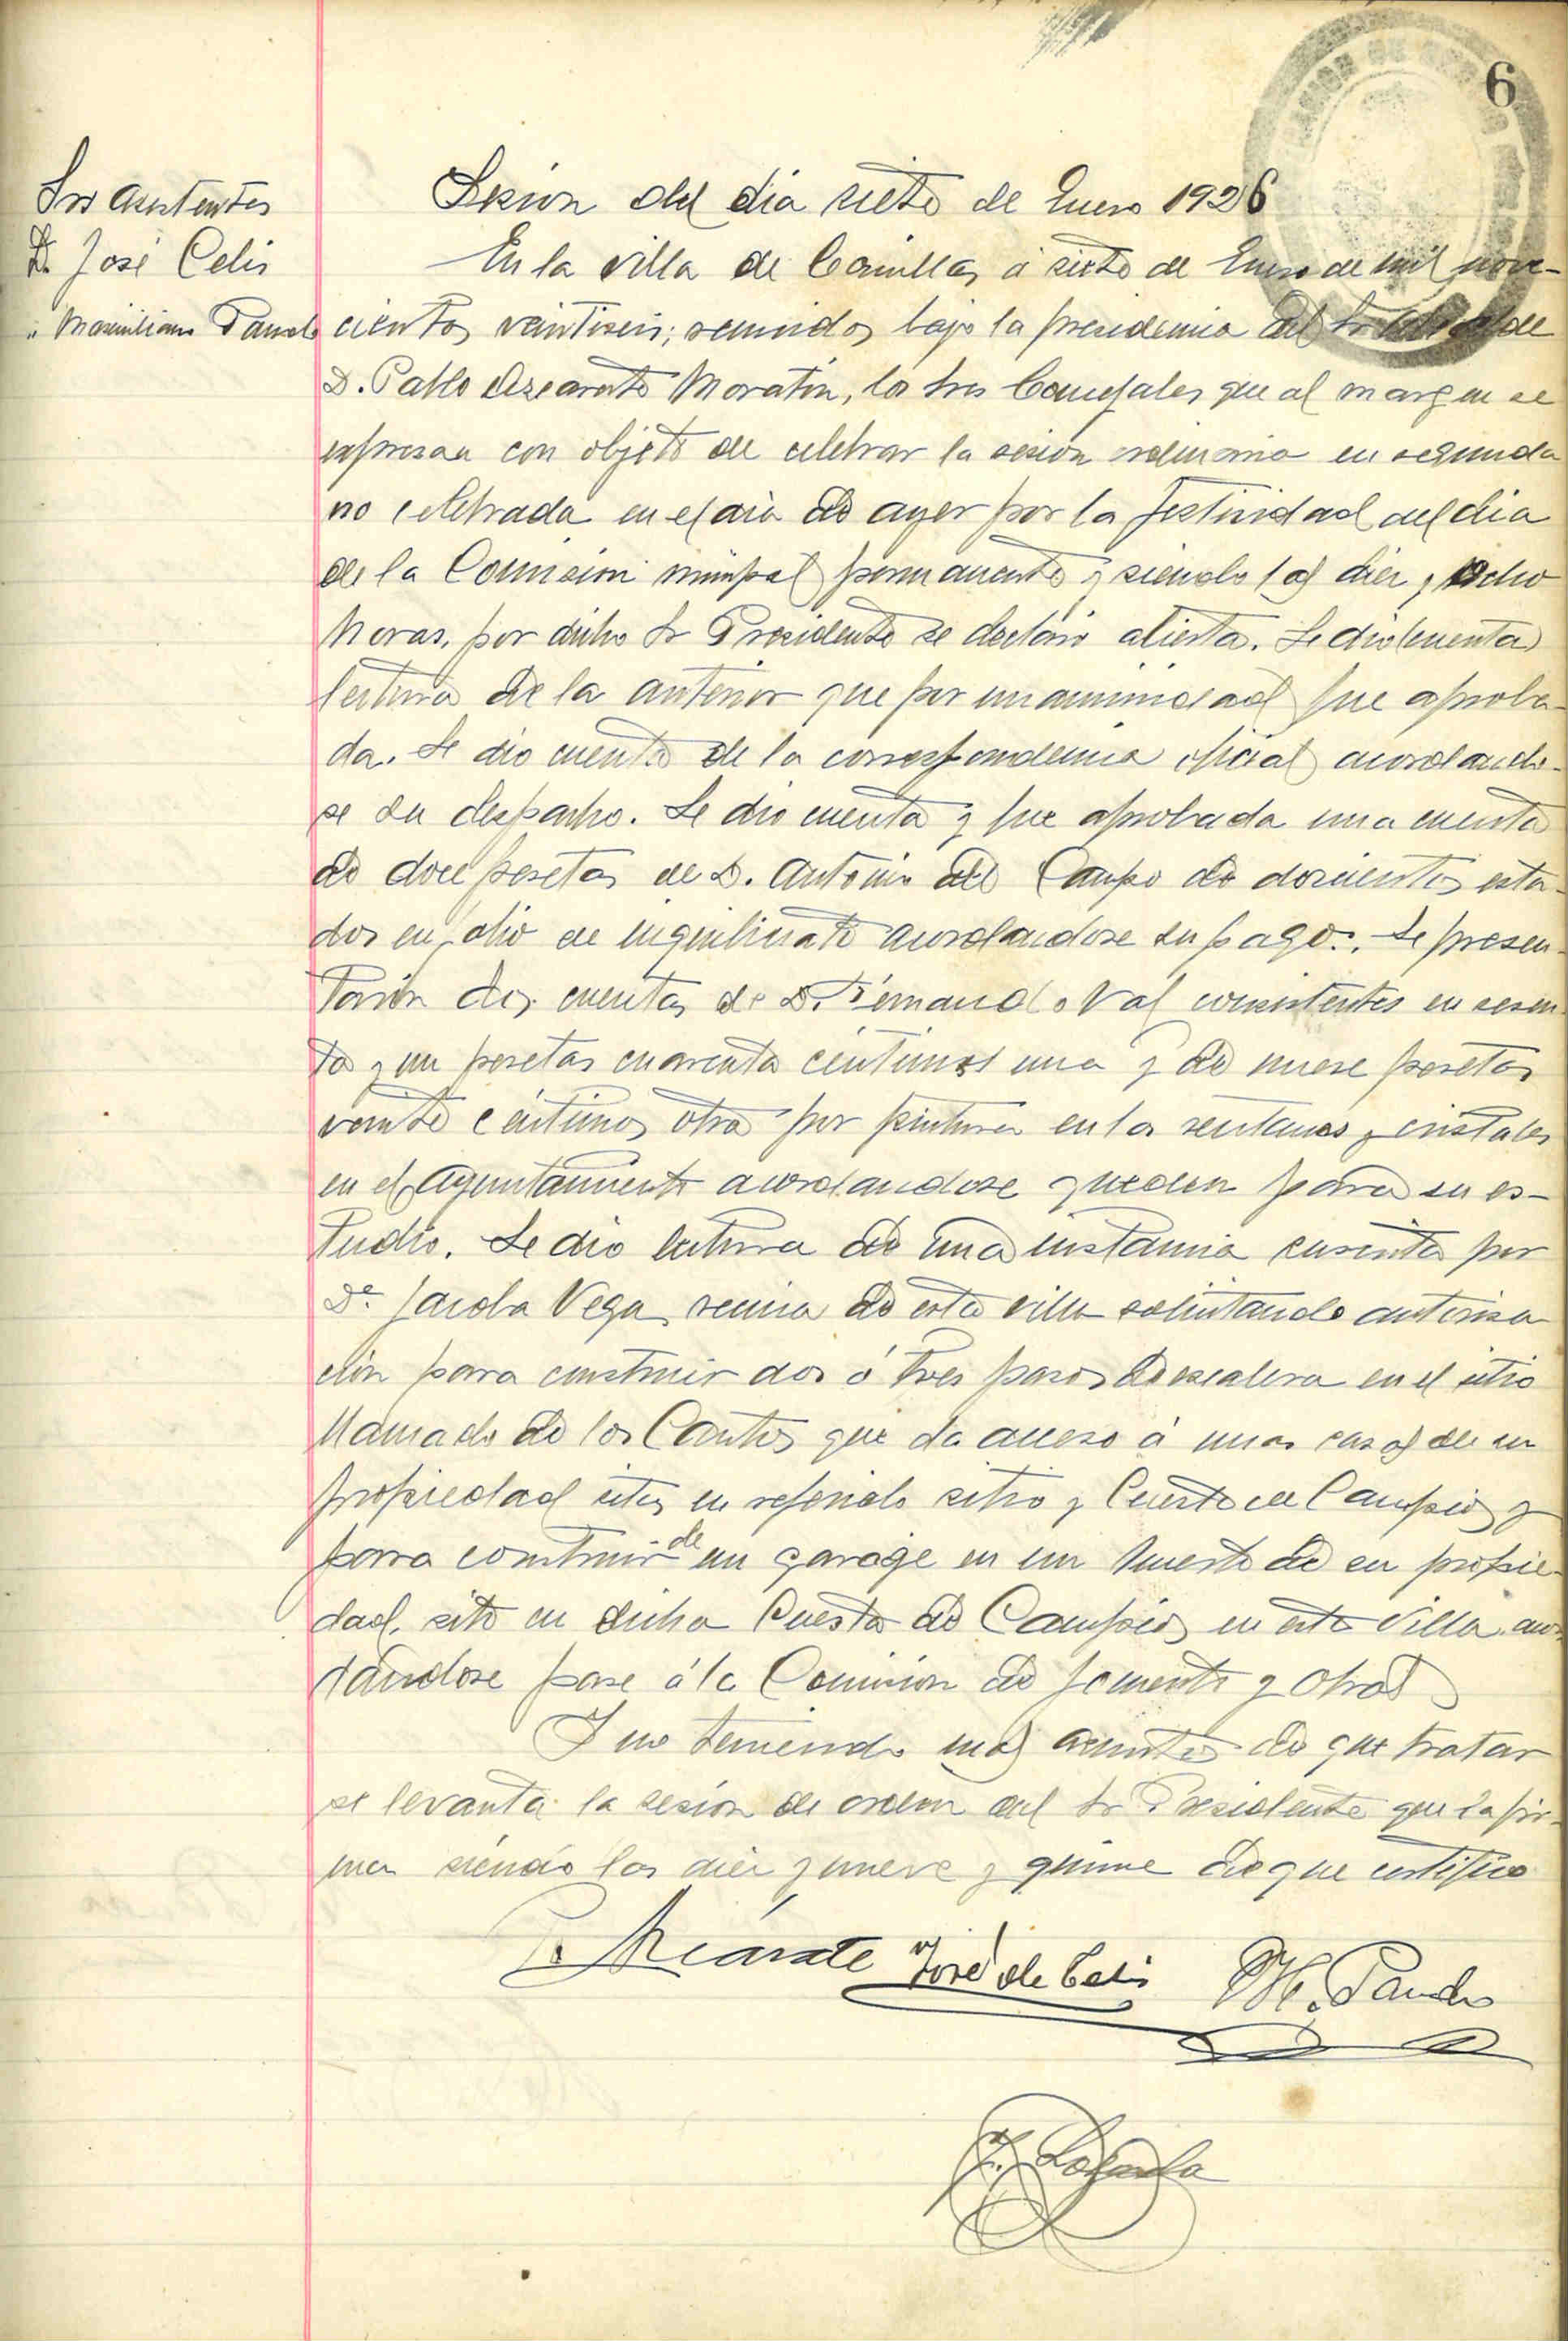 6
Sres asistentes
D. José Celis
" Maximiliano Pando
Sesion del dia siete de Enero 1926
En la villa de Comillas, á siete de Enero de mil nove-
cientos veintiseis; reunidos bajo la presidencia del Sr Alcalde
D. Pablo Azcarate Moratin, los Sres Concejales que al margen se
expresan con objeto de celebrar la sesión ordinaria en segunda
no celebrada en el dia de ayer por la festividad del dia
de la Comision munpal permanente y siendo las diez y ocho
horas, por dicho Sr Presidente se declaró abierta. Se dio cuenta
lectura de la anterior que por unanimidad fue aproba-
da. Se dio cuenta de la correspondencia oficial acordando-
se su despacho. Se dio cuenta y fue aprobada una cuenta
de doce pesetas de D. Antonio del Campo de doscientos esta-
dos en folio de inquilinato acordandose su pago. Se presen-
tarón dos cuentas de D. Fernando Val consistentes en sesen-
ta y un pesetas cuarenta centimos una y de nueve pesetas
veinte céntimos otra por pintura en las ventanas y cristales
en el Ayuntamiento acordandose queden para su es-
tudio. Se dio lectura de una instancia suscrita por
Dª. Jacoba Vega, vecina de esta villa solicitando autoriza
ción para construir dos ó tres pasos de escalera en el sitio
llamado de los Cantos que da acceso á unas casas de su
propiedad sitas en referido sitio y Cuesta de Campios y
para construir de un garage en un huerto de su propie-
dad, sito en dicha Cuesta de Campios en esta villa, acor
dándose pase á la Comisión de fomento y Obras
Y no teniendo mas asuntos de que tratar
se levanta la sesión de orden del Sr Presidente que la fir-
man siendo las diez y nueve y quince de que certifico
P. Azcárate José de Celis M. Pando